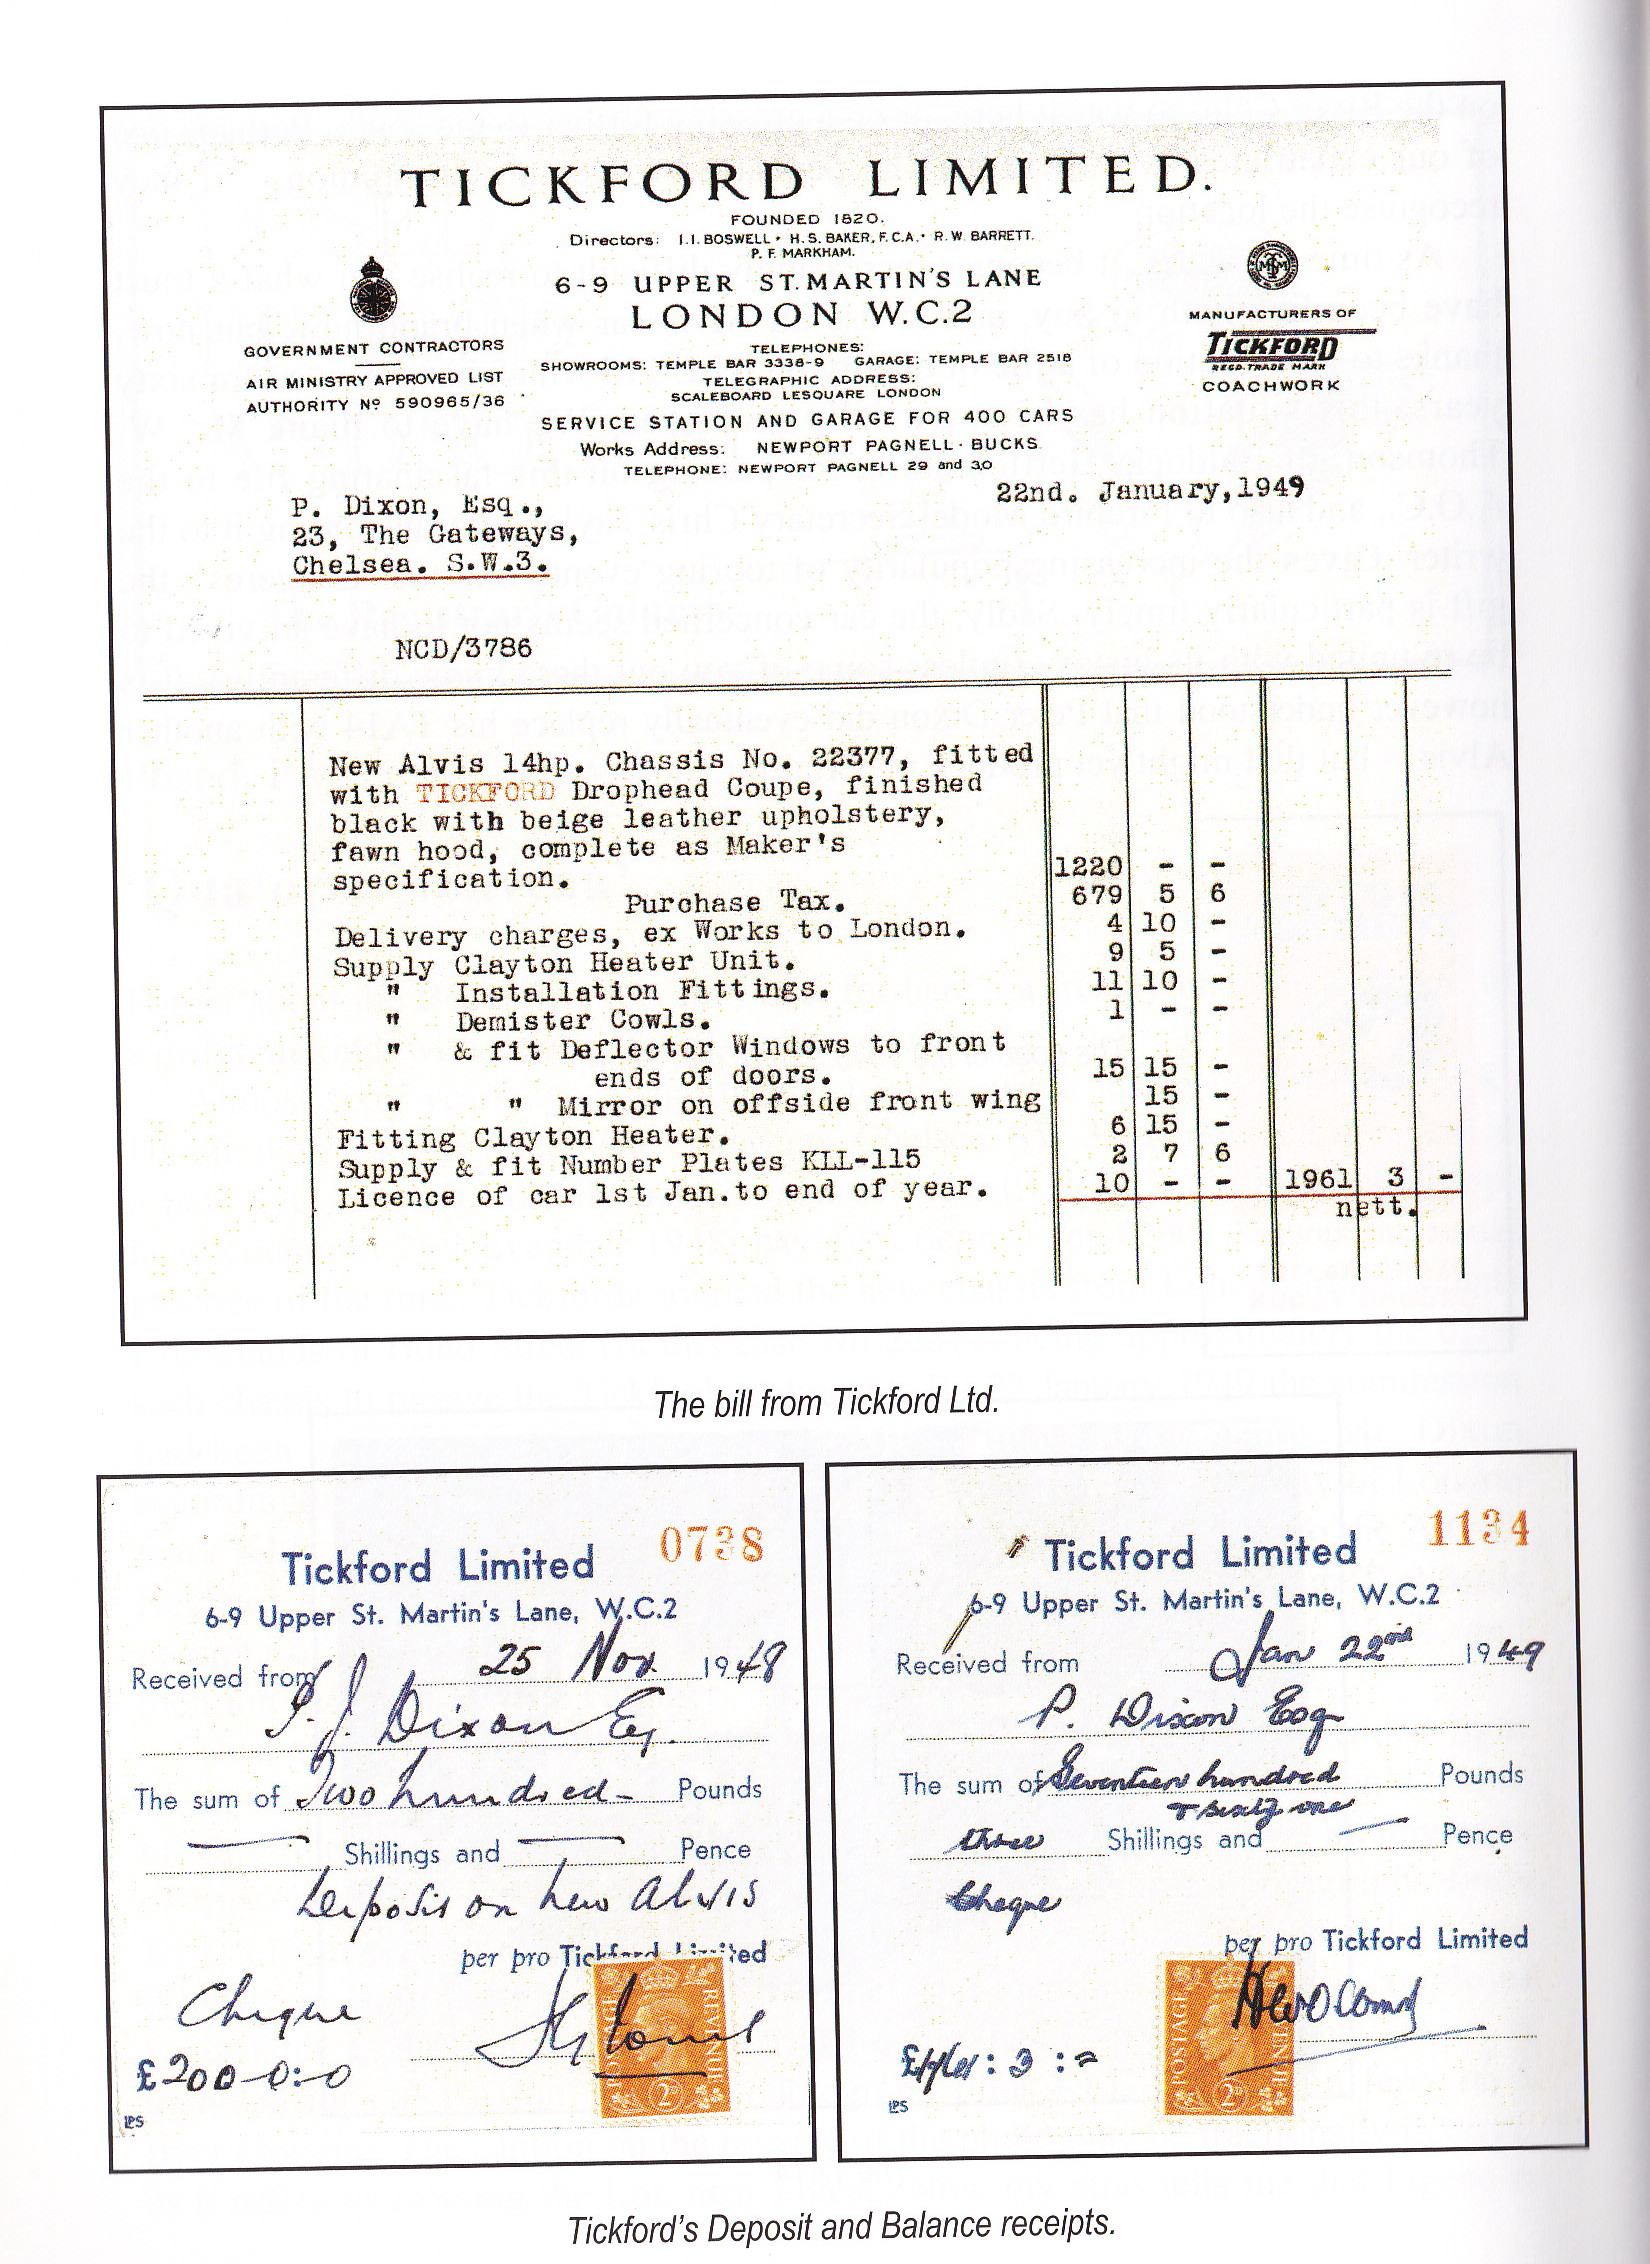 TICKFORD LIMITED.
FOUNDED 1820.
Directors: I.I. BOSWELL · H.S. BAKER, F.C.A. · R.W. BARRETT.
P. F. MARKHAM.
6-9 UPPER ST. MARTIN'S LANE
LONDON W.C.2
GOVERNMENT CONTRACTORS
AIR MINISTRY APPROVED LIST
AUTHORITY Nº 590965/36
MANUFACTURERS OF
TICKFORD
REGD. TRADE MARK
COACHWORK
TELEPHONES:
SHOWROOMS: TEMPLE BAR 3338-9 GARAGE: TEMPLE BAR 2518
TELEGRAPHIC ADDRESS:
SCALEBOARD LESQUARE LONDON
SERVICE STATION AND GARAGE FOR 400 CARS
Works Address: NEWPORT PAGNELL · BUCKS
TELEPHONE: NEWPORT PAGNELL 29 and 30
22nd. January, 1949
P. Dixon, Esq.,
23, The Gateways,
Chelsea. S.W.3.
NCD/3786
New Alvis 14hp. Chassis No. 22377, fitted
with TICKFORD Drophead Coupe, finished
black with beige leather upholstery,
fawn hood, complete as Maker's
specification. 1220 - -
Purchase Tax. 679 5 6
Delivery charges, ex Works to London. 4 10 -
Supply Clayton Heater Unit. 9 5 -
" Installation Fittings. 11 10 -
" Demister Cowls. 1 - -
" & fit Deflector Windows to front
ends of doors. 15 15 -
" " Mirror on offside front wing 15 -
Fitting Clayton Heater. 6 15 -
Supply & fit Number Plates KLL-115 2 7 6
Licence of car 1st Jan. to end of year. 10 - - 1961 3 -
nett.
The bill from Tickford Ltd.
0738
Tickford Limited
6-9 Upper St. Martin's Lane, W.C.2
25 Nov. 1948
Received from
P. J. Dixon Esq.
The sum of Two hundred - Pounds
— Shillings and — Pence
Deposit on new Alvis
per pro Tickford Limited
Cheque
£200-0:-0
POSTAGE REVENUE
2D
LPS
1134
Tickford Limited
6-9 Upper St. Martin's Lane, W.C.2
Received from Jan 22nd 1949
P. Dixon Esq
The sum of Seventeen hundred Pounds
& sixty one
three Shillings and — Pence
Cheque
per pro Tickford Limited
£1761 : 3 : =
POSTAGE REVENUE
2D
LPS
Tickford's Deposit and Balance receipts.